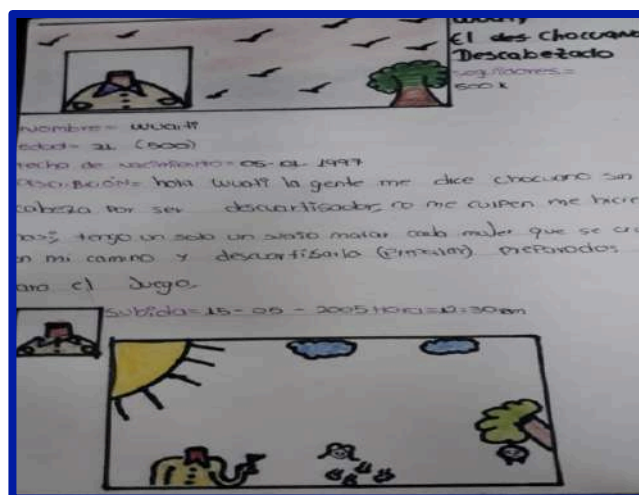 El des Chocuano
Descabezado
seguidores=
500 K
nombre= wuati
edad= 21 (500)
fecha de nacimiento= 05-01-1997
hola wuati la gente me dice chocuano sin
cabeza por ser descuartisador, no me culpen me hicie
tengo un solo un sueño matar cada mujer que se cru
en mi camino y descuartisarla preparados
para el Juego.
Subida= 15-05-2005 Hora= 12:30 am